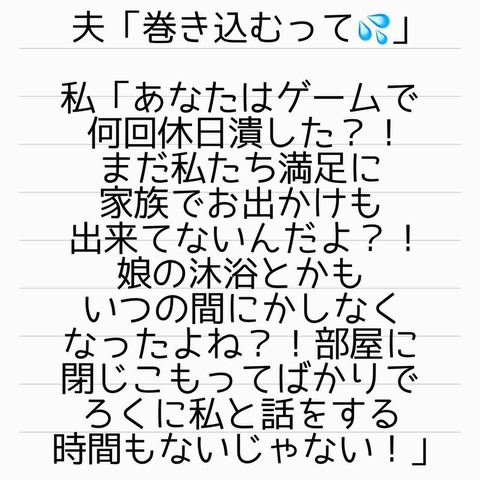 夫「巻き込むって💦」
私「あなたはゲームで
何回休日潰した？！
まだ私たち満足に
家族でお出かけも
出来てないんだよ？！
娘の沐浴とかも
いつの間にかしなく
なったよね？！部屋に
閉じこもってばかりで
ろくに私と話をする
時間もないじゃない！」